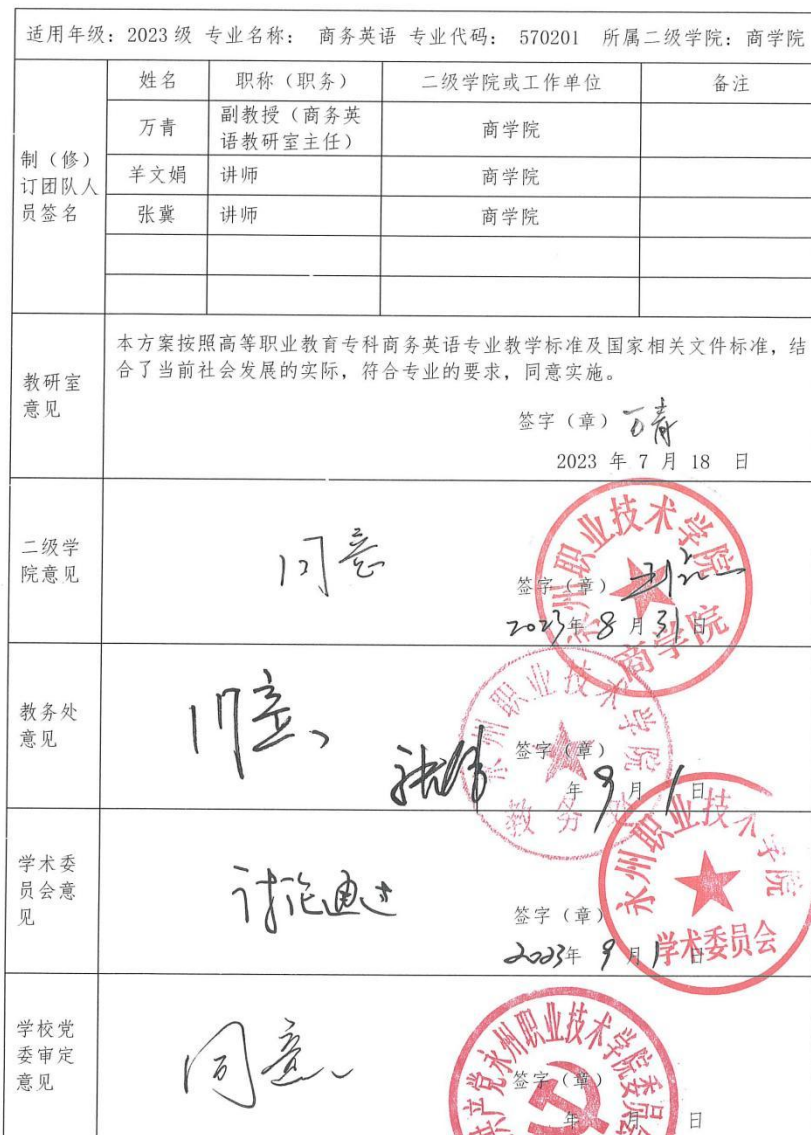 适用年级：2023级 专业名称： 商务英语 专业代码： 570201 所属二级学院：商学院
制（修）订团队人员签名
姓名 职称（职务） 二级学院或工作单位 备注
万青 副教授（商务英语教研室主任） 商学院
羊文娟 讲师 商学院
张冀 讲师 商学院
教研室
意见
本方案按照高等职业教育专科商务英语专业教学标准及国家相关文件标准，结
合了当前社会发展的实际，符合专业的要求，同意实施。
签字（章） 万青
2023 年 7 月 18 日
二级学
院意见
同意
签字（章）
2023年 8 月 31 日
永州职业技术学院
商学院
教务处
意见
同意
签字（章）
年 9 月 1 日
永州职业技术学院
教务处
学术委
员会意
见
讨论通过
签字（章）
2023年 9 月 1 日
永州职业技术学院
学术委员会
学校党
委审定
意见
同意
签字（章）
年 月 日
共产党永州职业技术学院委员会